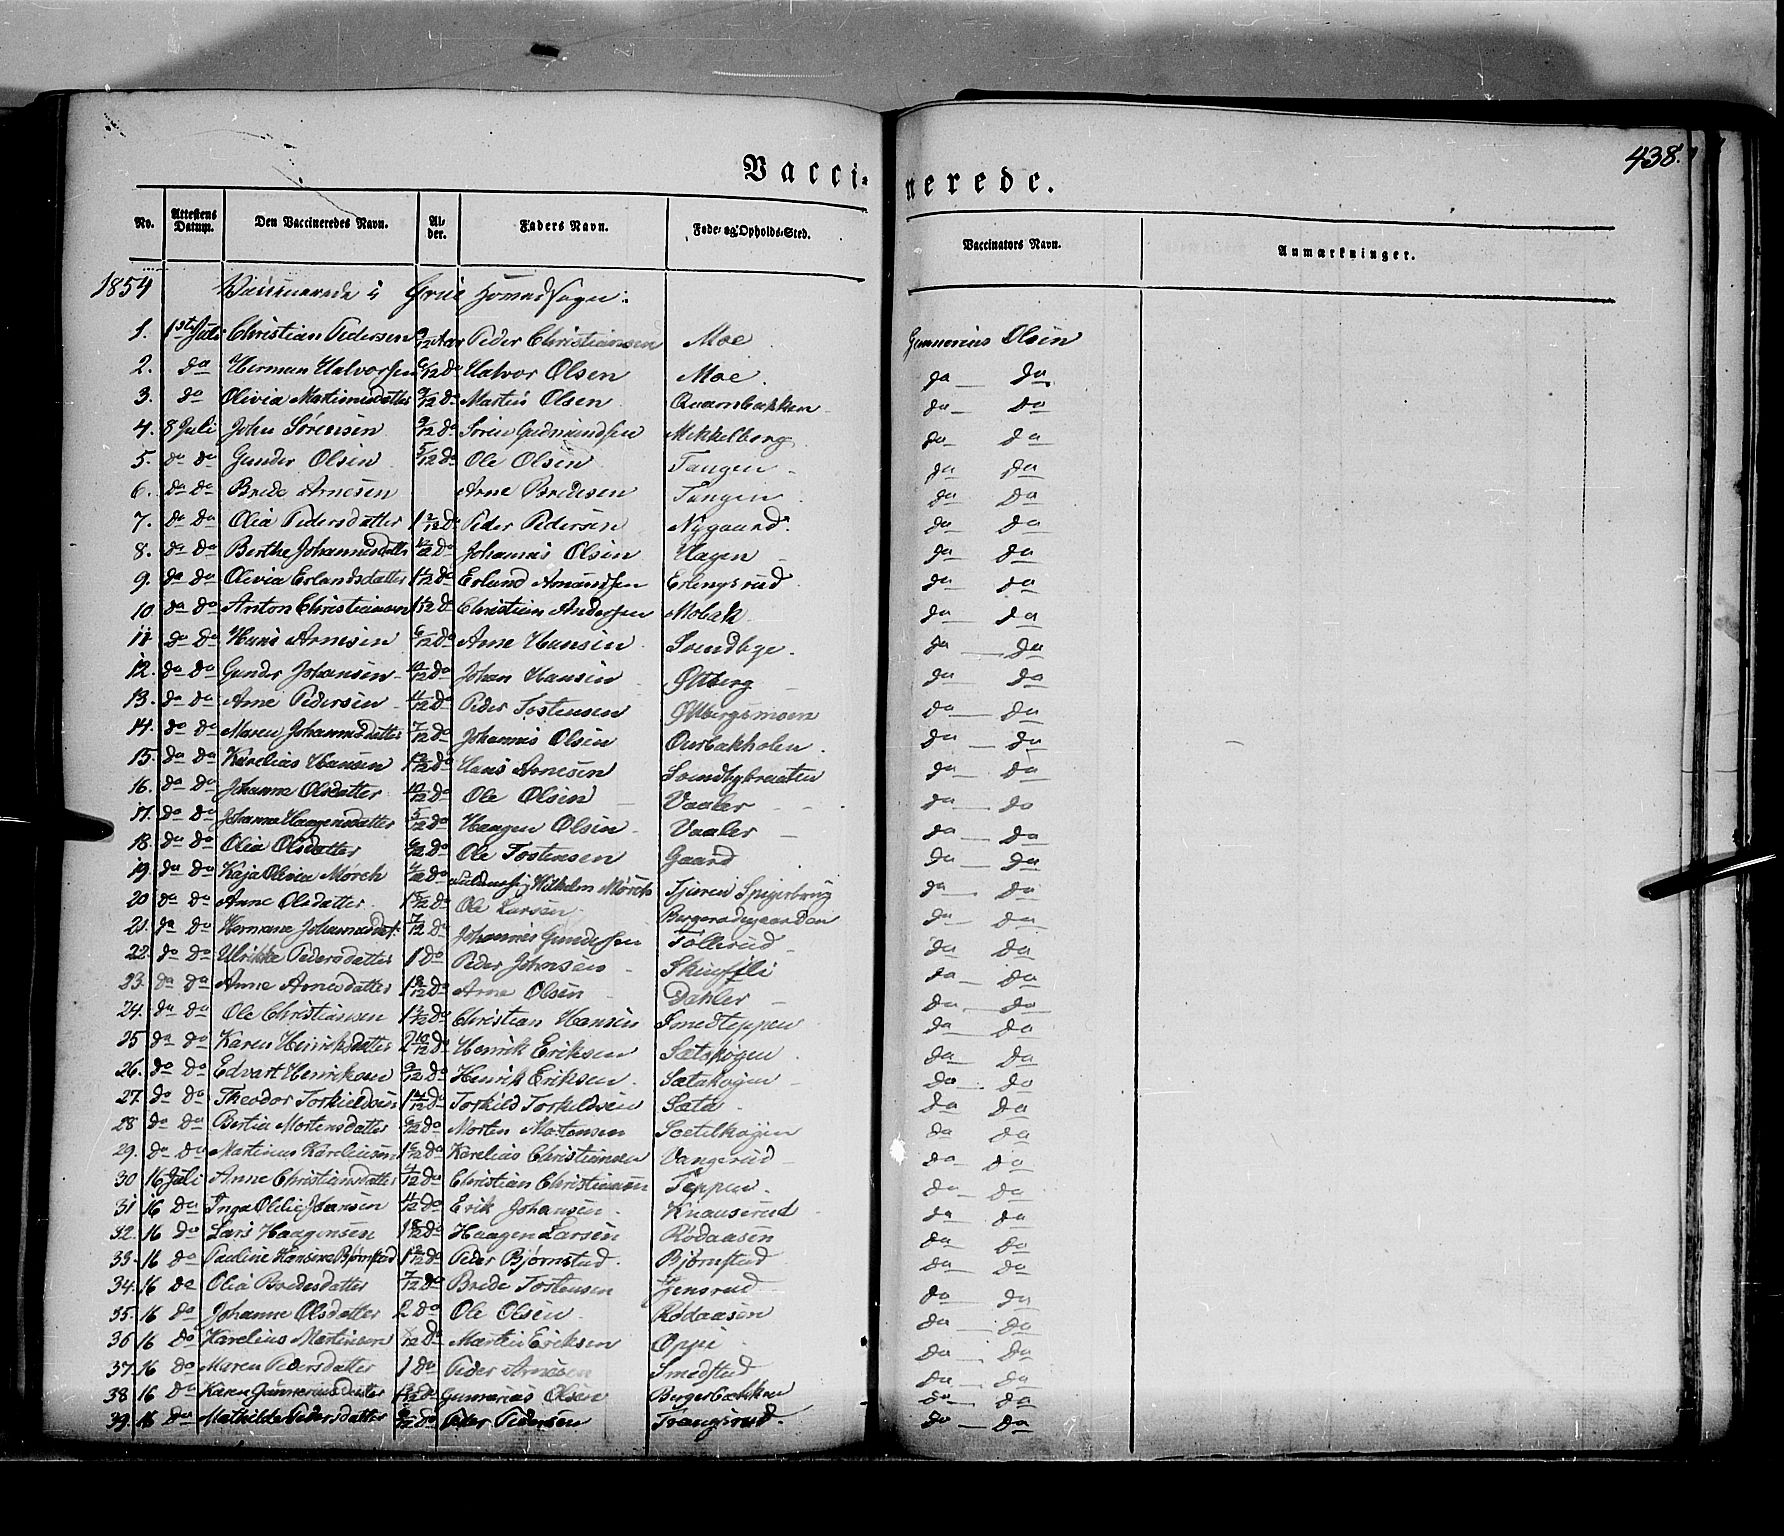 438.
Vacci- nerede.
No. Attestens Datum. Den Vaccineredes Navn. Al- der. Faders Navn. Føde- og Opholds-Sted. Vaccinators Navn. Anmærkninger.
1854 Vaccinerede i Grue Hovedsogn:
1. 1ste Juli Christian Pedersen 9/12 Aar Peder Christiansen Moe Gunnerius Olsen
2. do Herman Halvorsen 6/12 do Halvor Olsen Moe do do
3. do Olivia Martinusdatter 9/12 do Martin Olsen Quarnbakken do do
4. 8 Juli John Sørensen 9/12 do Sören Gudmundsen Mikkelborg do do
5. do do Gunder Olsen 5/12 do Ole Olsen Tangen do do
6. do do Brede Arnesen Arne Bredesen Tangen do do
7. do do Olia Pedersdatter 1 do Peder Pedersen Nygaard do do
8. do do Berthe Johannesdatter do Johannes Olsen Hagen do do
9. do do Olivia Erlandsdatter do Erland Amundsen Erlingsrud do do
10 do do Anton Christiansen do Christian Andersen Mobak do do
11. do do Hans Arnesen 6/12 do Arne Hansen Sundbye do do
12. do do Gunder Johansen 10/12 do Johan Hansen Ottberg do do
13. do do Arne Pedersen 11/12 do Peder Tostensen Ottbergsmoen do do
14. do do Maren Johannesdatter 7/12 do Johannes Olsen Ourbakholen do do
15. do do Karelius Hansen do Hans Arnesen Sundbybraaten do do
16. do do Johanne Olsdatter 10/12 do Ole Olsen Vaaler do do
17. do do Johanne Haagensdatter 5/12 do Haagen Olsen Vaaler do do
18. do do Olia Olsdatter do Ole Tostensen Gaard do do
19. do do Kaja Olivia Mörch do Wilhelm Mörch Tjuren Spigerbrug do do
20 do do Anne Olsdatter do Ole Larsen do do
21. do do Hermane Johannesdat. 7/12 do Johannes Gundersen Tollerud do do
22. do do Ulrikke Pedersdatter 1 do Peder Johnsen do do
23. do do Anne Arnesdatter do Arne Olsen Dahler do do
24. do do Ole Christiansen do Christian Hansen Smedteppen do do
25 do do Karen Henriksdatter 2 10/12 do Henrik Eriksen Sætskogen do do
26. do do Edvart Henriksen 9/12 do Henrik Eriksen Sætskogen do do
27. do do Theodor Torkieldsen do Torkild Torkildsen Sæta do do
28 do do Bertia Mortensdatter do Morten Mortensen do do
29. do do Martinus Kareliusen do Karelius Christiansen Vangerud do do
30 16 Juli Anne Christiansdatter do Christian Christiansen Teppen do do
31 16 do Inga Oldie Hansen do Erik Johansen Knauserud do do
32. 16 do Lars Haagensen do Haagen Larsen Rödaasen do do
33. 16 do Pauline Hansine Bjørnstad do Peder Bjørnstad Bjørnstad do do
34. 16 do Olia Bredesdatter 7/12 do Brede Tostensen Jensrud do do
35. 16 do Johanne Olsdatter 2 do Ole Olsen Rödaasen do do
36 16 do Karelius Martinsen do Martin Eriksen Oppi do do
37. 16 do Maren Pedersdatter 1 do Peder Arnesen Smedstad do do
38 16 do Karen Gunneriusdatter do Gunnarius Olsen Bergerbakken do do
39. 16 do Mathilde Pedersdatter do Peder Pedersen Trangsrud do do